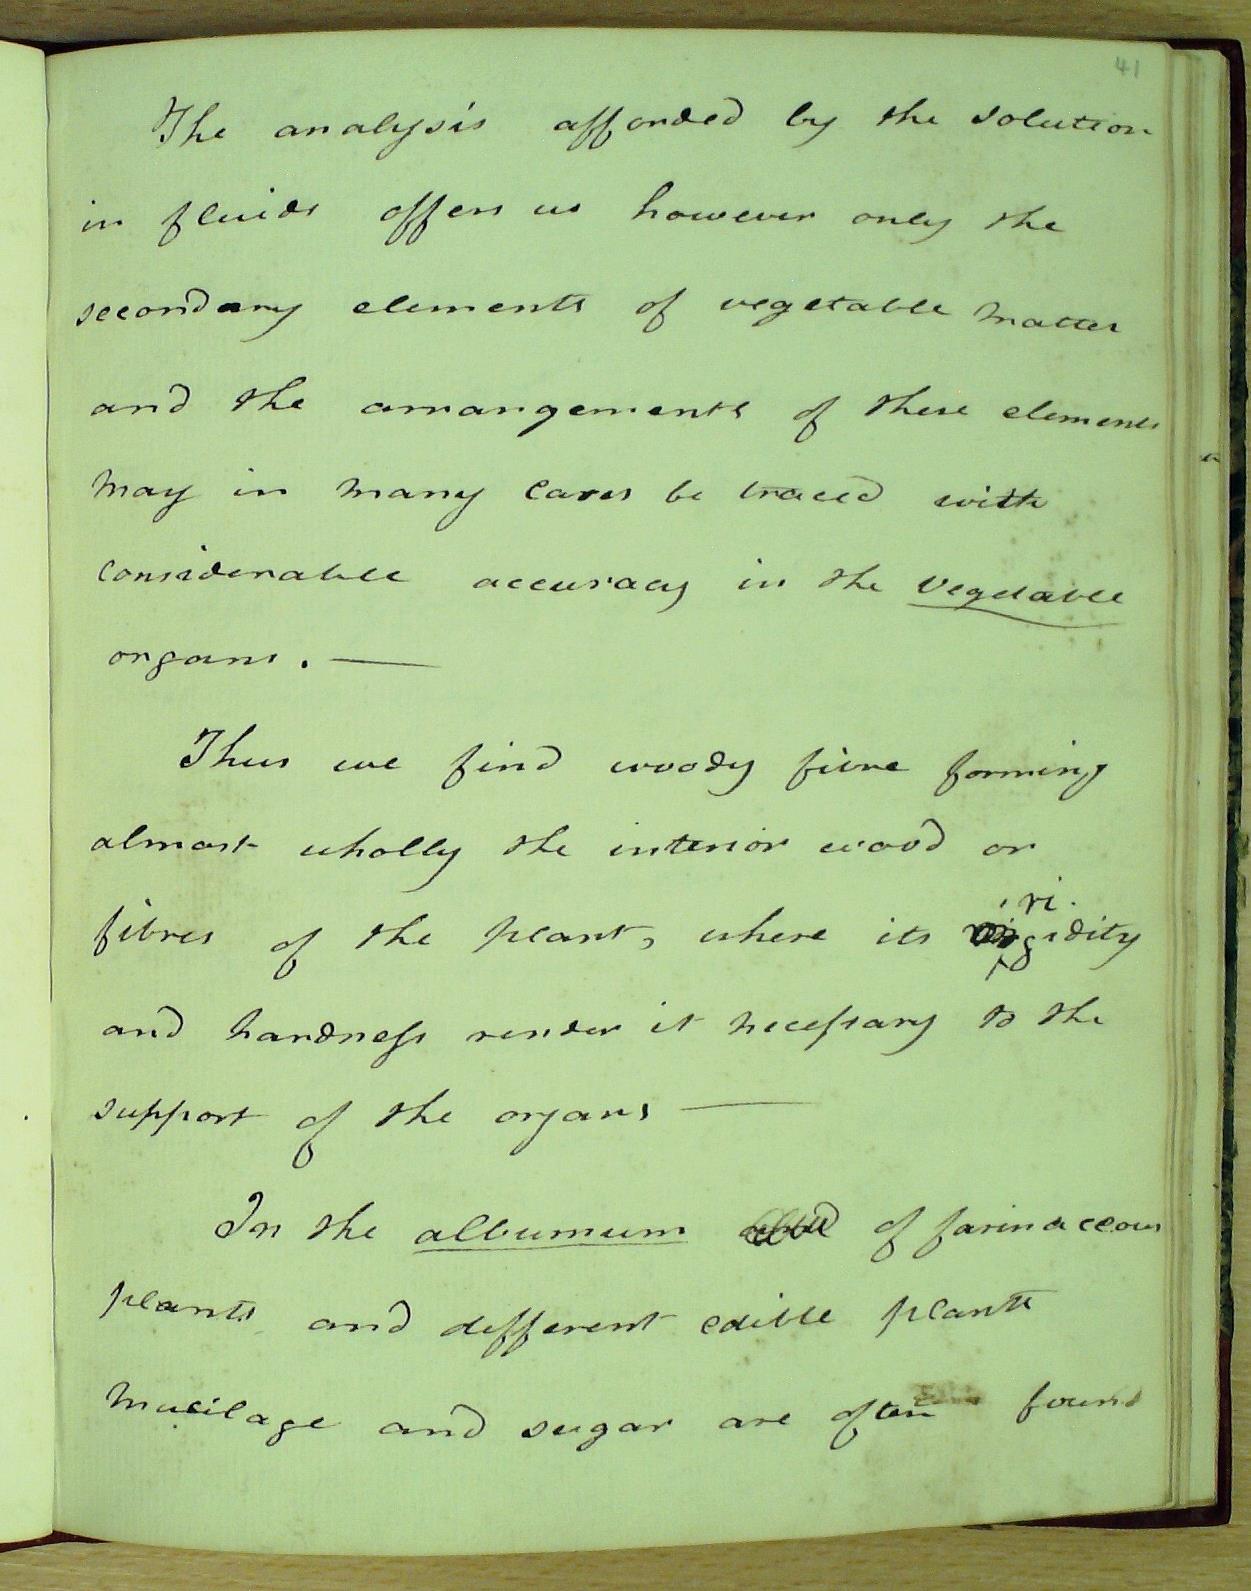 41
The analysis afforded by the solution
in fluids offers us however only the
secondary elements of vegetable matter
and the arrangements of these elements
may in many cases be traced with
considerable accuracy in the Vegetable
organs. —
Thus we find woody fibre forming
almost wholly the interior wood or
ri
fibres of the plant, where its gidity
and hardness render it necessary to the
support of the organs —
In the alburnum of farinaceous
plants and different edible plants
Mucilage and sugar are often found